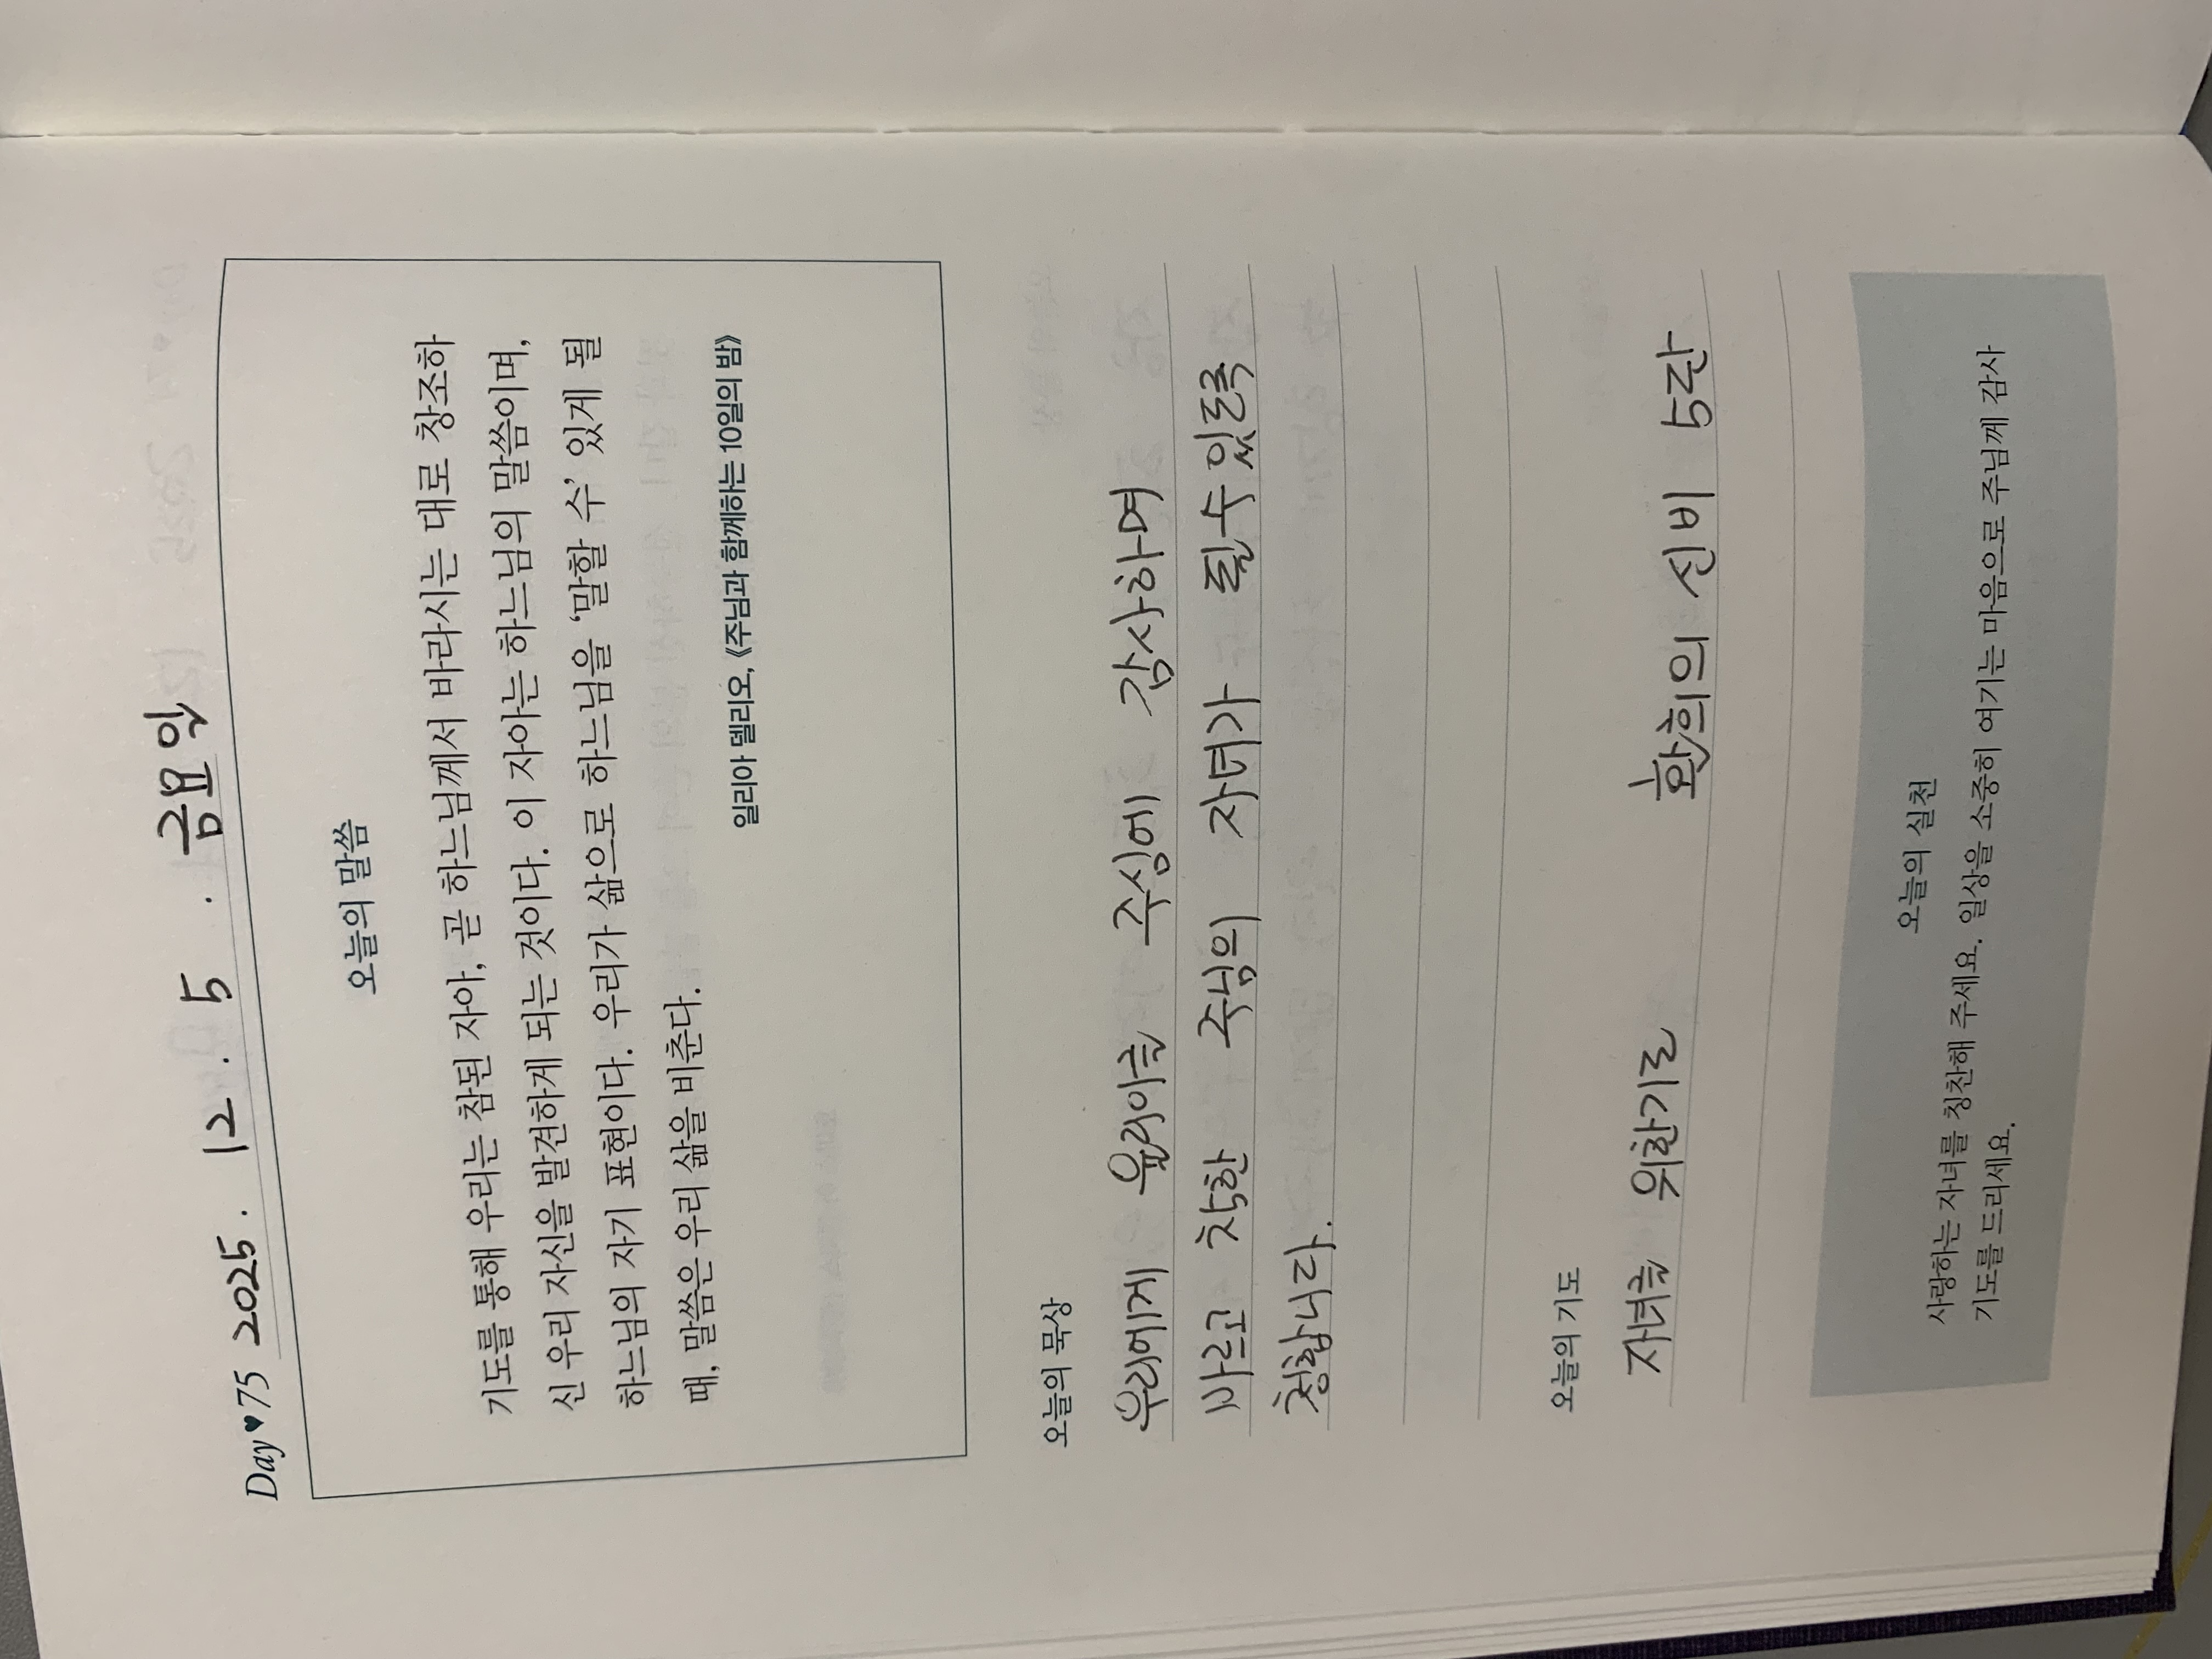 Day♥75 2025. 12. 5. 금요일
오늘의 말씀
기도를 통해 우리는 참된 자아, 곧 하느님께서 바라시는 대로 창조하
신 우리 자신을 발견하게 되는 것이다. 이 자아는 하느님의 말씀이며,
하느님의 자기 표현이다. 우리가 삶으로 하느님을 ‘말할 수’ 있게 될
때, 말씀은 우리 삶을 비춘다.
일리아 델리오, 《주님과 함께하는 10일의 밤》
오늘의 묵상
우리에게 주심에 감사하며
바르고 착한 주님의 자녀가 될수있도록
청합니다.
오늘의 기도
자녀를 위한기도 환희의 신비 5단
오늘의 실천
사랑하는 자녀를 칭찬해 주세요. 일상을 소중히 여기는 마음으로 주님께 감사
기도를 드리세요.